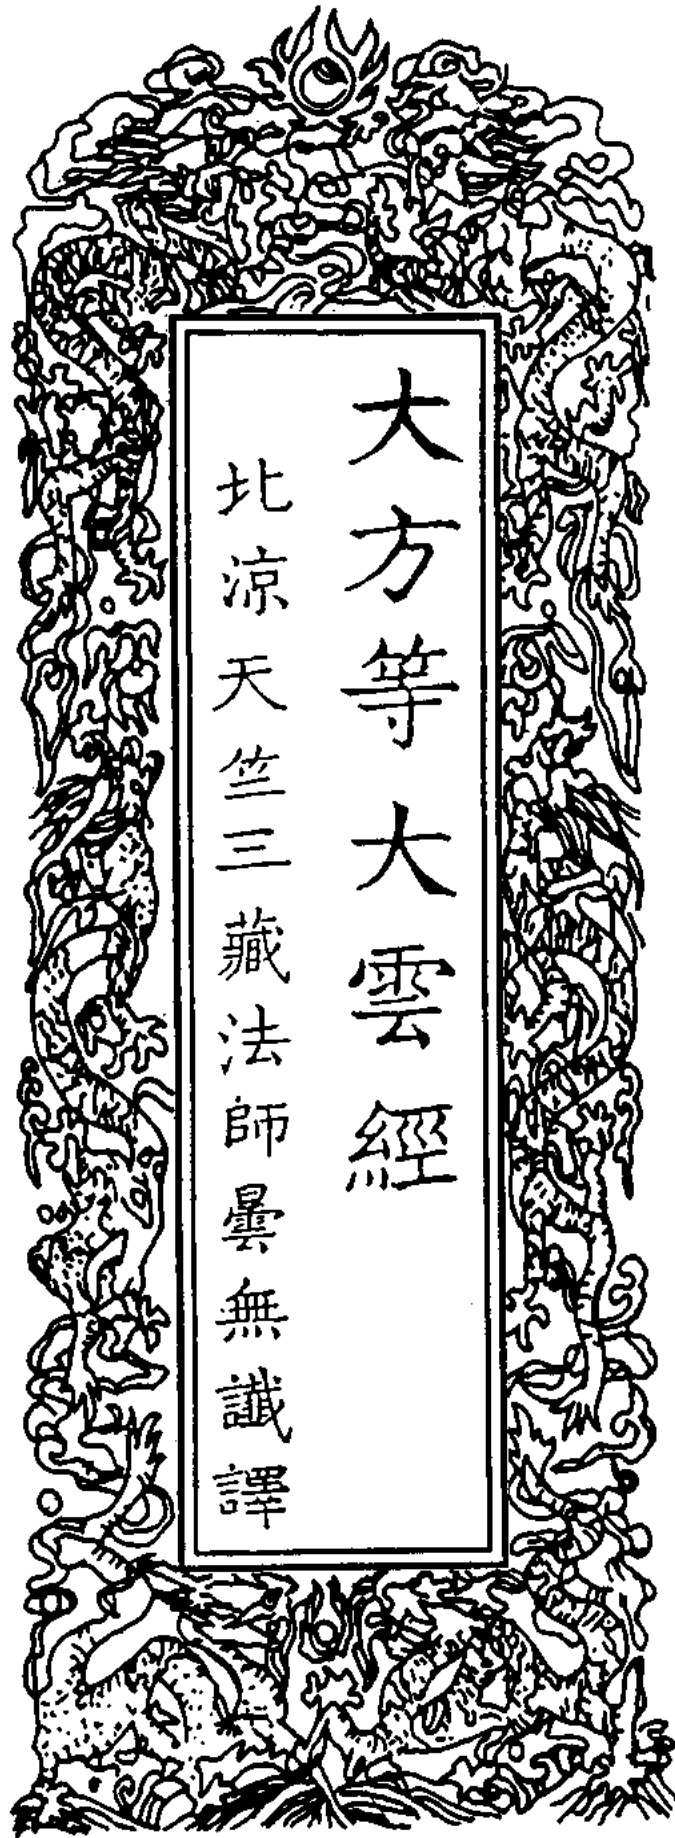 大方等大雲經
北涼天竺三藏法師曇無讖譯